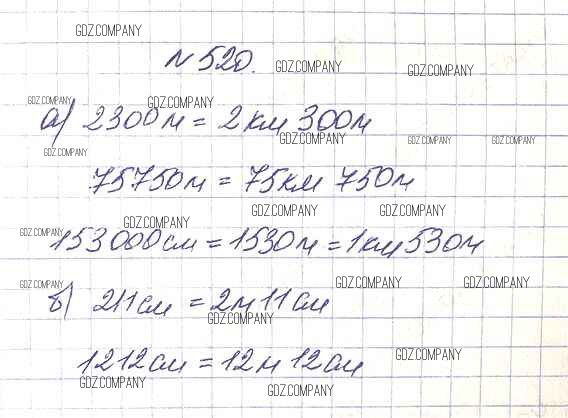 GDZ.COMPANY
N 520.
GDZ.COMPANY GDZ.COMPANY
GDZ.COMPANY GDZ.COMPANY
а) 2300 м = 2 км 300 м
GDZ.COMPANY GDZ.COMPANY GDZ.COMPANY
GDZ.COMPANY
75750 м = 75 км 750 м
GDZ.COMPANY GDZ.COMPANY GDZ.COMPANY
GDZ.COMPANY
153 000 см = 1530 м = 1 км 530 м
GDZ.COMPANY GDZ.COMPANY GDZ.COMPANY
б) 211 см = 2 м 11 см
GDZ.COMPANY
1212 см = 12 м 12 см
GDZ.COMPANY
GDZ.COMPANY GDZ.COMPANY